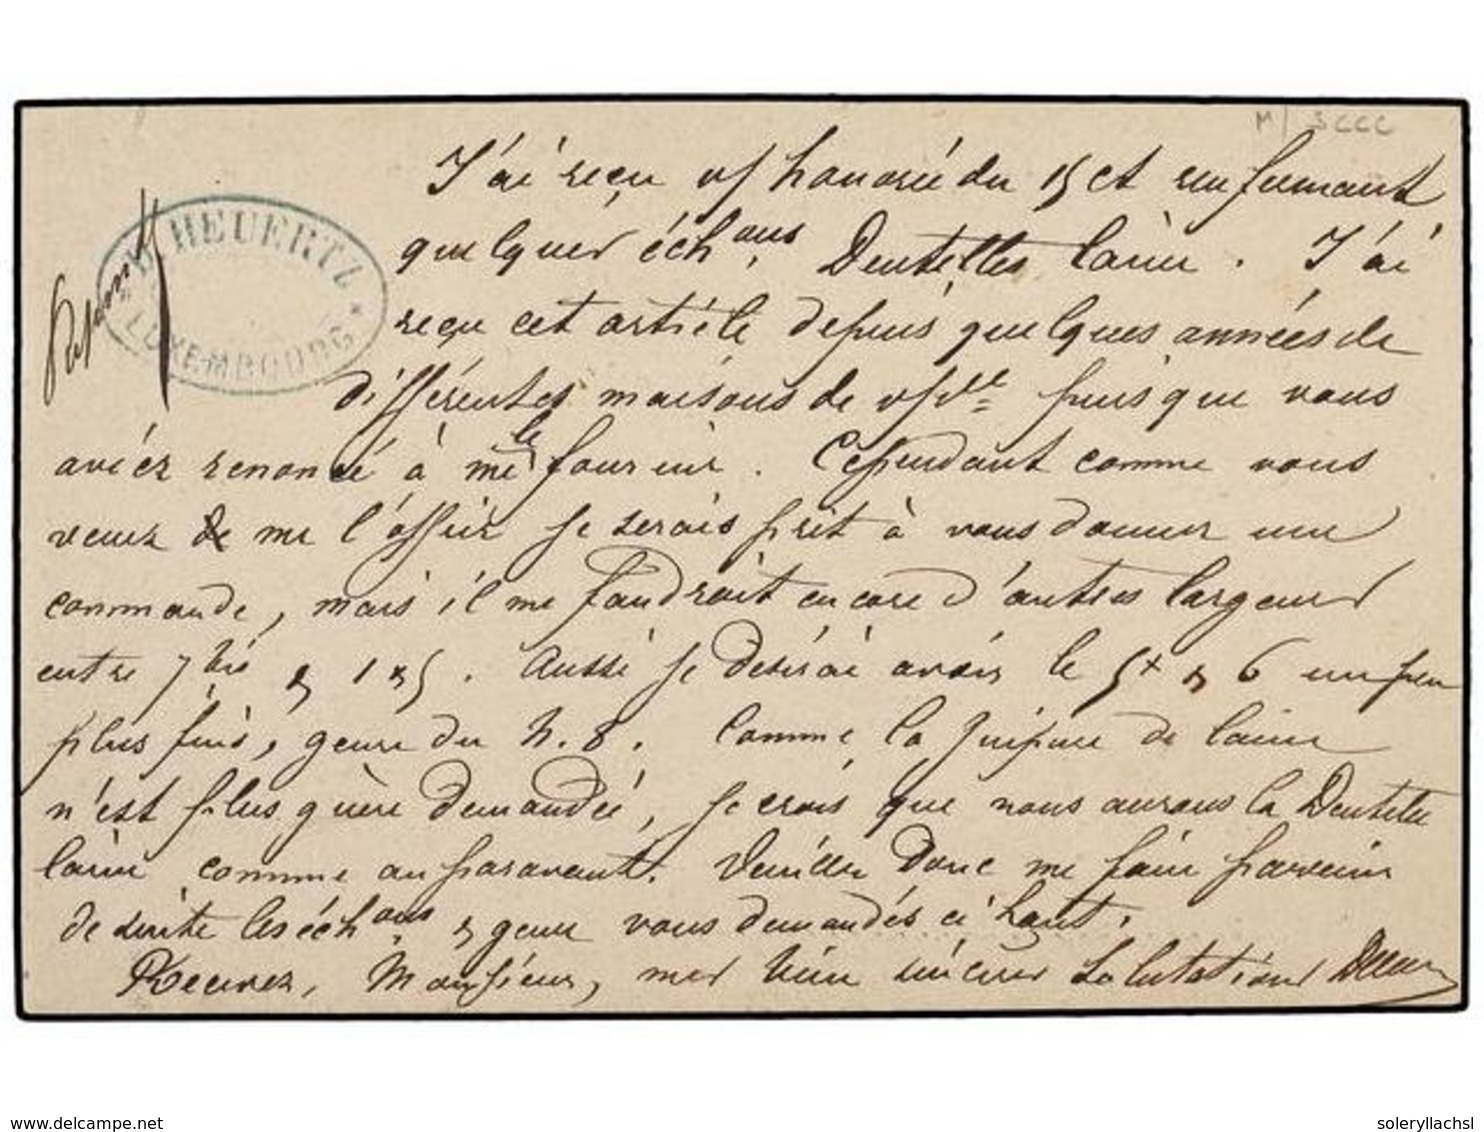 M/ 3CCC
HEUERTZ
LUXEMBOURG
J'ai reçu v/ honorée du 15 ct renfermant
quelques échons Dentelles laine. J'ai
reçu cet article depuis quelques années de
différentes maisons de v/ve puisque vous
aviez renoncé à me le fournir. Cependant comme vous
venez de me l'offrir je serais prêt à vous donner une
commande, mais il me faudrait encore d'autres largeurs
entre 7 & 1 & 5. Aussi je désirai avoir le 5x & 6 un peu
plus fins, genre du N. 8. Comme la guipure de laine
n'est plus guère demandée, je crois que nous aurons la Dentelle
laine comme auparavant. Veuillez donc me faire parvenir
de suite les échons & genre vous demandés ci haut.
Recevez, Monsieur, mes bien sincères salutations
delcampe.net
soleryllachsl